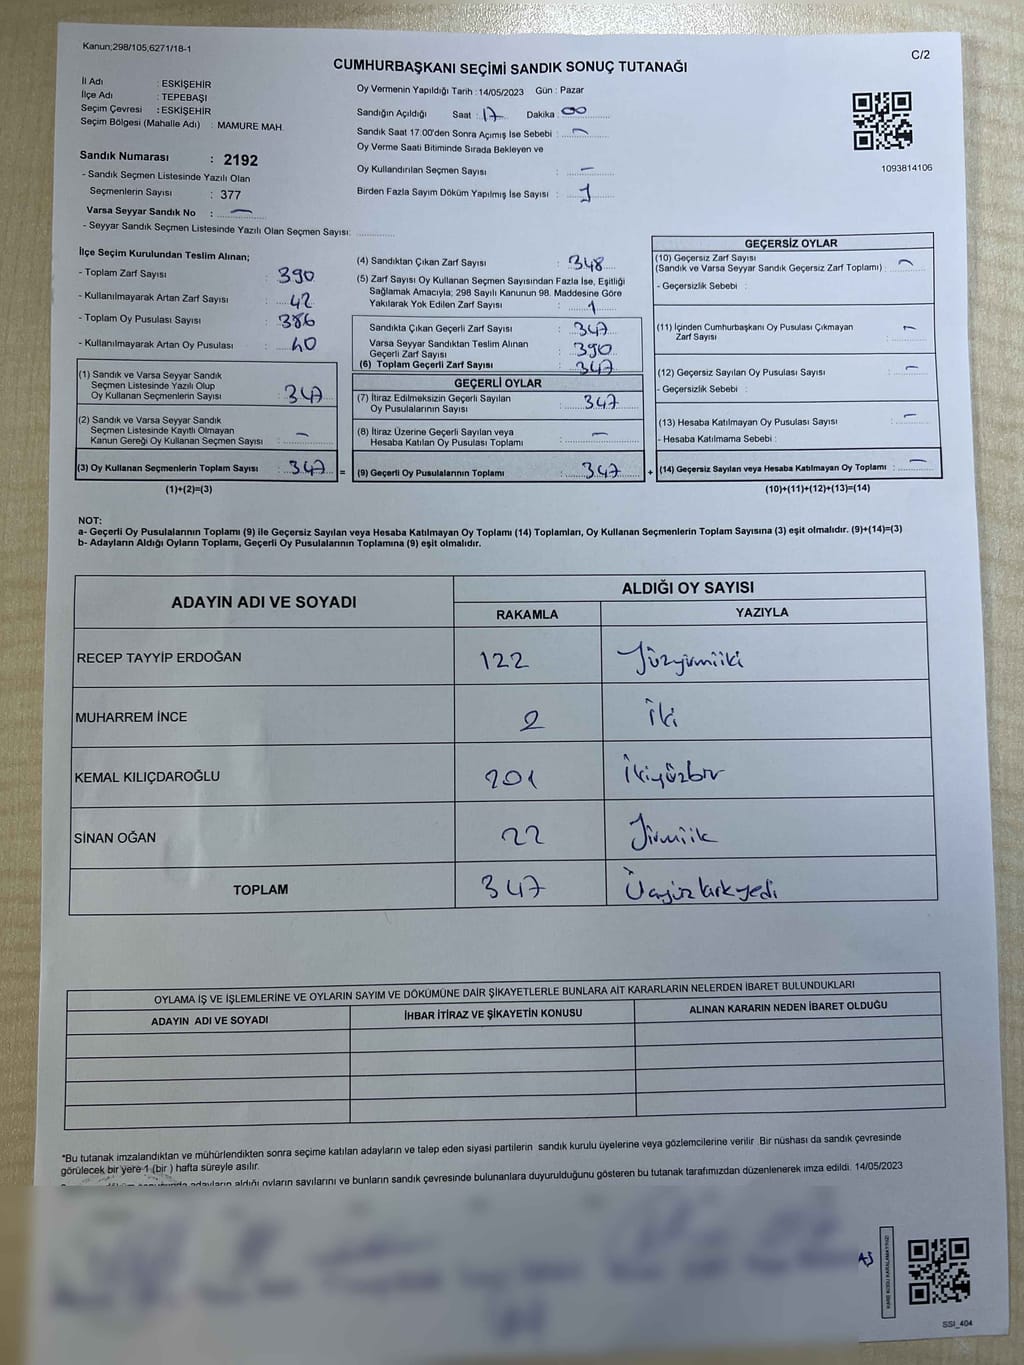 Kanun;298/105,6271/18-1
C/2
CUMHURBAŞKANI SEÇİMİ SANDIK SONUÇ TUTANAĞI
İl Adı : ESKİŞEHİR
İlçe Adı : TEPEBAŞI
Seçim Çevresi : ESKİŞEHİR
Seçim Bölgesi (Mahalle Adı) : MAMURE MAH.
Sandık Numarası : 2192
- Sandık Seçmen Listesinde Yazılı Olan
Seçmenlerin Sayısı : 377
Varsa Seyyar Sandık No : —
- Seyyar Sandık Seçmen Listesinde Yazılı Olan Seçmen Sayısı:
Oy Vermenin Yapıldığı Tarih : 14/05/2023 Gün : Pazar
Sandığın Açıldığı Saat : 17 Dakika : 00
Sandık Saat 17.00'den Sonra Açımış İse Sebebi : —
Oy Verme Saati Bitiminde Sırada Bekleyen ve
Oy Kullandırılan Seçmen Sayısı : —
Birden Fazla Sayım Döküm Yapılmış İse Sayısı : 1
1093814106
İlçe Seçim Kurulundan Teslim Alınan;
- Toplam Zarf Sayısı : 390
- Kullanılmayarak Artan Zarf Sayısı : 42
- Toplam Oy Pusulası Sayısı : 386
- Kullanılmayarak Artan Oy Pusulası : 40
(1) Sandık ve Varsa Seyyar Sandık
Seçmen Listesinde Yazılı Olup
Oy Kullanan Seçmenlerin Sayısı : 347
(2) Sandık ve Varsa Seyyar Sandık
Seçmen Listesinde Kayıtlı Olmayan
Kanun Gereği Oy Kullanan Seçmen Sayısı : —
(3) Oy Kullanan Seçmenlerin Toplam Sayısı : 347 =
(1)+(2)=(3)
(4) Sandıktan Çıkan Zarf Sayısı : 348
(5) Zarf Sayısı Oy Kullanan Seçmen Sayısından Fazla İse, Eşitliği
Sağlamak Amacıyla; 298 Sayılı Kanunun 98. Maddesine Göre
Yakılarak Yok Edilen Zarf Sayısı : 1
Sandıkta Çıkan Geçerli Zarf Sayısı : 347
Varsa Seyyar Sandıktan Teslim Alınan
Geçerli Zarf Sayısı : 390
(6) Toplam Geçerli Zarf Sayısı : 347
GEÇERLİ OYLAR
(7) İtiraz Edilmeksizin Geçerli Sayılan
Oy Pusulalarının Sayısı : 347
(8) İtiraz Üzerine Geçerli Sayılan veya
Hesaba Katılan Oy Pusulası Toplamı : —
(9) Geçerli Oy Pusulalarının Toplamı : 347 +
GEÇERSİZ OYLAR
(10) Geçersiz Zarf Sayısı
(Sandık ve Varsa Seyyar Sandık Geçersiz Zarf Toplamı) : —
- Geçersizlik Sebebi :
(11) İçinden Cumhurbaşkanı Oy Pusulası Çıkmayan
Zarf Sayısı : —
(12) Geçersiz Sayılan Oy Pusulası Sayısı : —
- Geçersizlik Sebebi :
(13) Hesaba Katılmayan Oy Pusulası Sayısı : —
- Hesaba Katılmama Sebebi :
(14) Geçersiz Sayılan veya Hesaba Katılmayan Oy Toplamı : —
(10)+(11)+(12)+(13)=(14)
NOT:
a- Geçerli Oy Pusulalarının Toplamı (9) ile Geçersiz Sayılan veya Hesaba Katılmayan Oy Toplamı (14) Toplamları, Oy Kullanan Seçmenlerin Toplam Sayısına (3) eşit olmalıdır. (9)+(14)=(3)
b- Adayların Aldığı Oyların Toplamı, Geçerli Oy Pusulalarının Toplamına (9) eşit olmalıdır.
ADAYIN ADI VE SOYADI
ALDIĞI OY SAYISI
RAKAMLA YAZIYLA
RECEP TAYYİP ERDOĞAN 122 Yüzyirmiiki
MUHARREM İNCE 2 İki
KEMAL KILIÇDAROĞLU 201 İkiyüzbir
SİNAN OĞAN 22 Yirmiik
TOPLAM 347 Üçyüzkırkyedi
OYLAMA İŞ VE İŞLEMLERİNE VE OYLARIN SAYIM VE DÖKÜMÜNE DAİR ŞİKAYETLERLE BUNLARA AİT KARARLARIN NELERDEN İBARET BULUNDUKLARI
ADAYIN ADI VE SOYADI İHBAR İTİRAZ VE ŞİKAYETİN KONUSU ALINAN KARARIN NEDEN İBARET OLDUĞU
*Bu tutanak imzalandıktan ve mühürlendikten sonra seçime katılan adayların ve talep eden siyasi partilerin sandık kurulu üyelerine veya gözlemcilerine verilir .Bir nüshası da sandık çevresinde
görülecek bir yere 1 (bir ) hafta süreyle asılır.
adayların aldığı oyların sayılarını ve bunların sandık çevresinde bulunanlara duyurulduğunu gösteren bu tutanak tarafımızdan düzenlenerek imza edildi. 14/05/2023
KARE KODU KARALAMAYINIZ!
SSI_404